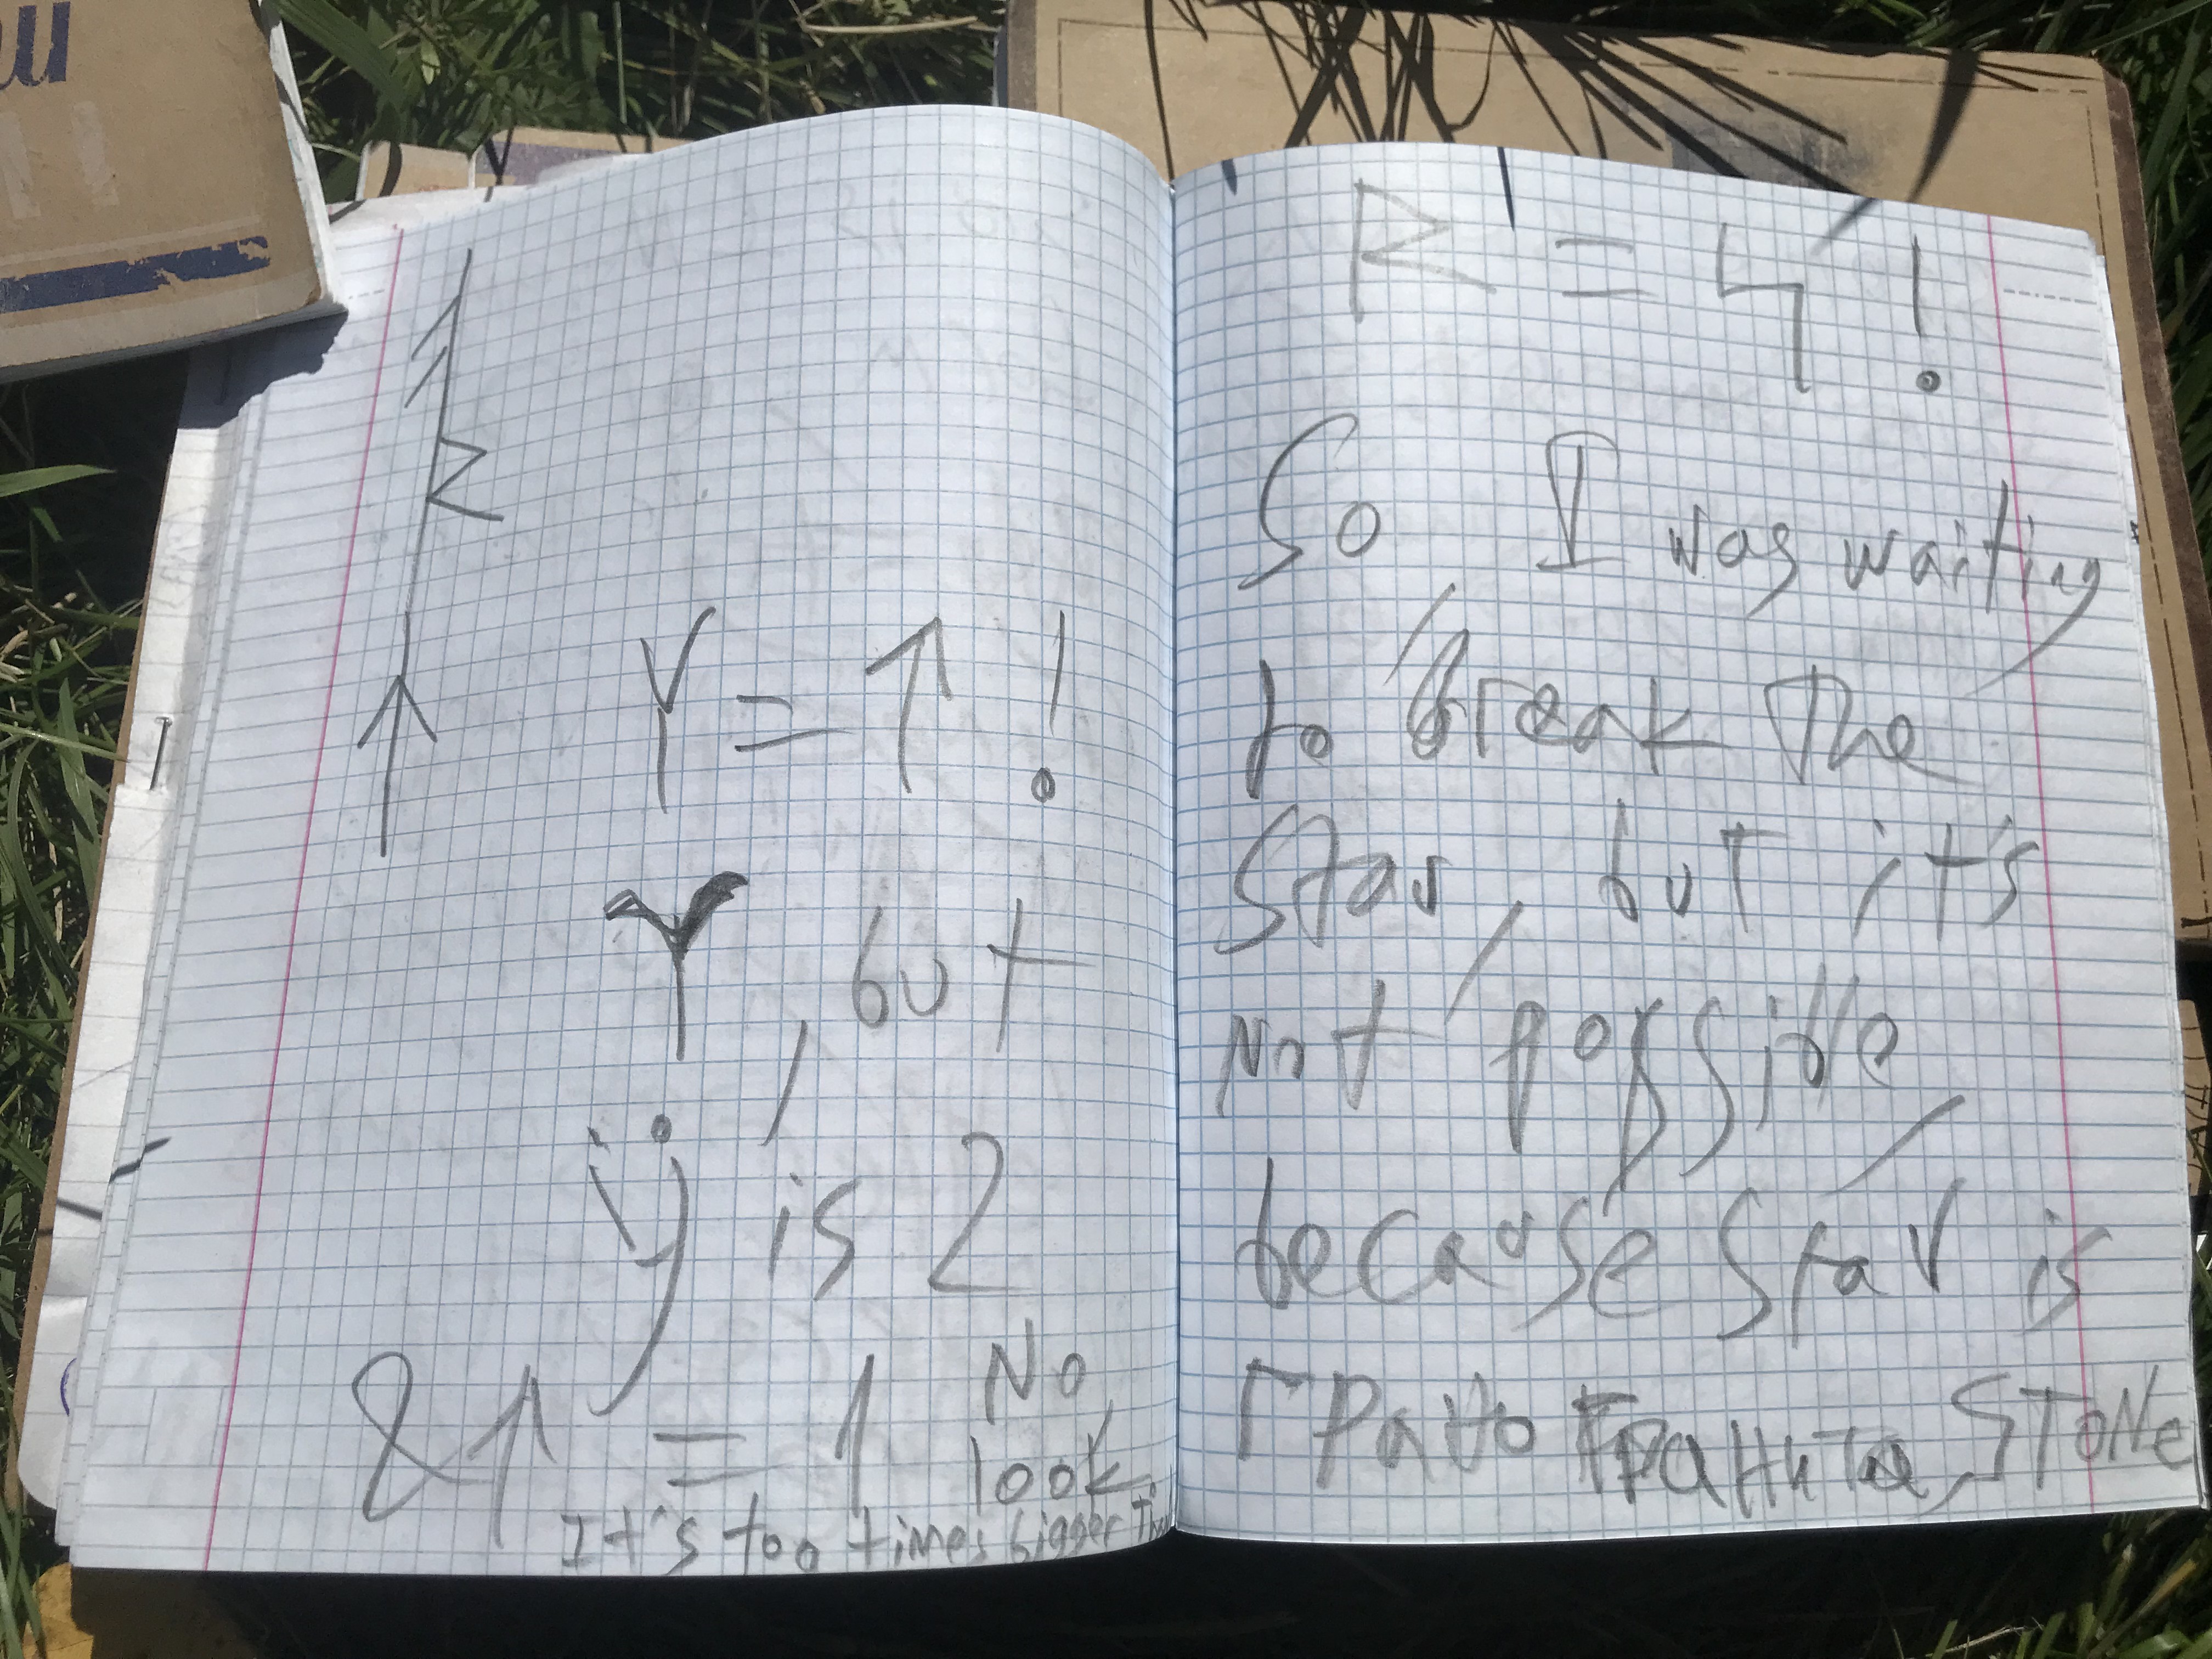 R
Y = ↑ !
Y, but
ij is 2
2↑ = 1 No
look
It's too times bigger
R = 4 !
So I was waiting
to break the
Star, but it's
Not possible
because star is
грано гранита, STONe